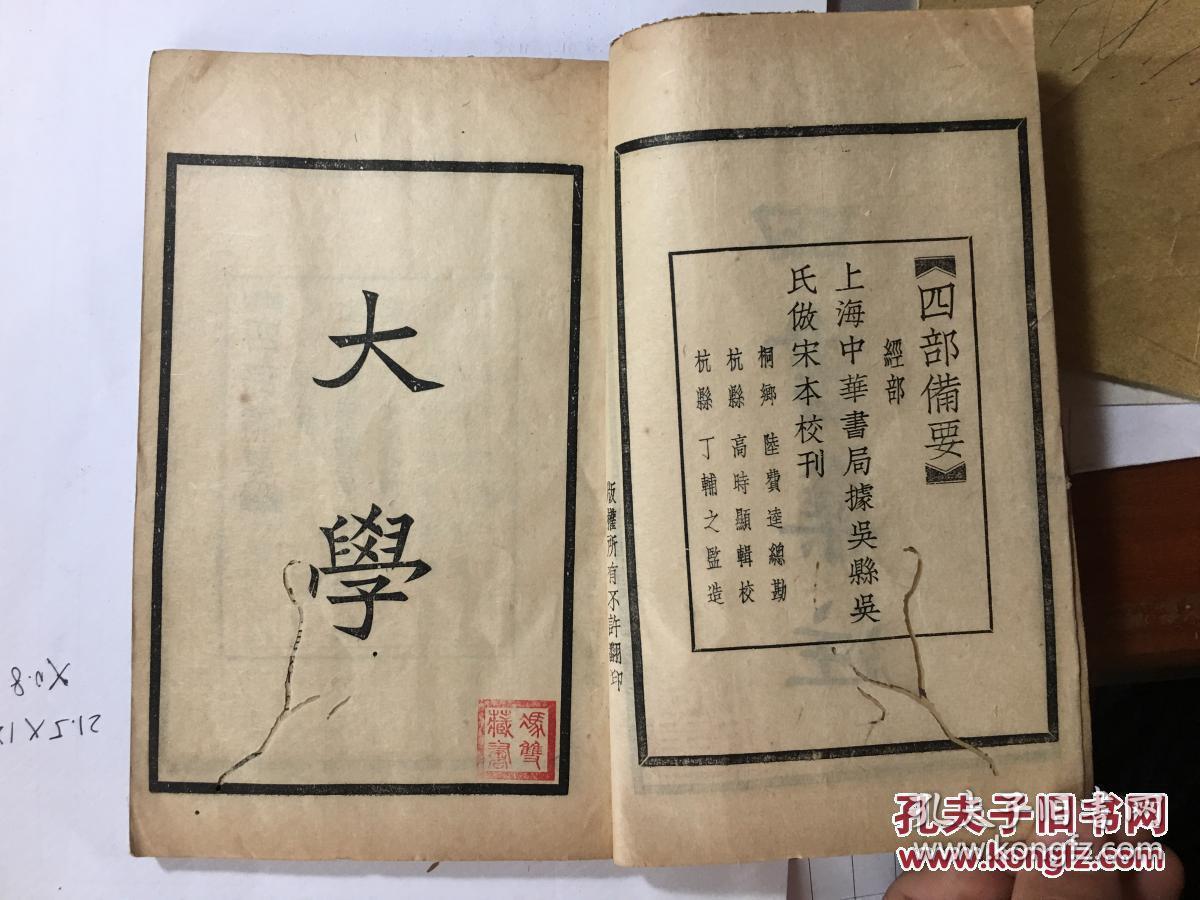 四部備要
經部
上海中華書局據吳縣吳
氏倣宋本校刊
桐鄉 陸費逵總勘
杭縣 高時顯輯校
杭縣 丁輔之監造
版權所有不許翻印
大學
馮雙
藏書
21.5X1
X0.8
孔夫子旧书网
www.kongfz.com